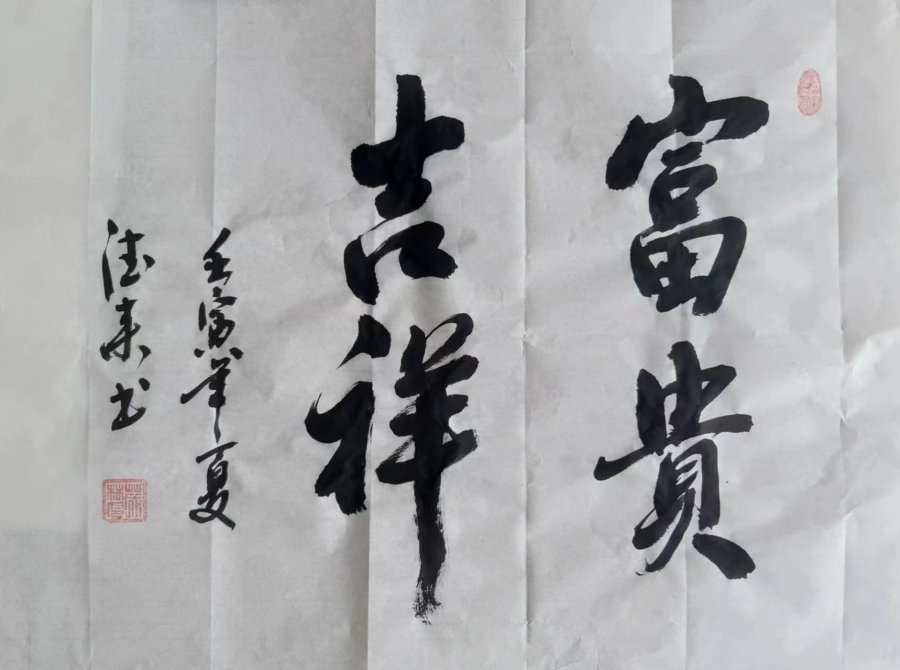 富貴
吉祥
壬寅年夏
德東书